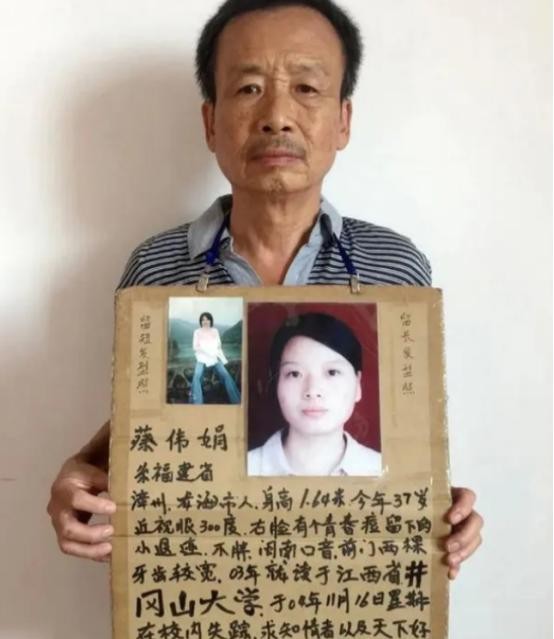 留短发型照
留长发型照
蔡伟娟
系福建省
漳州、龙海市人,身高1.64米,今年37岁
近视眼300度,右脸有个青春痘留下的
小退迹,不胖,闽南口音,前门两棵
牙齿较宽,03年就读于江西省井
冈山大学,于04年11月16日星期
在校内失踪,求知情者以及天下好